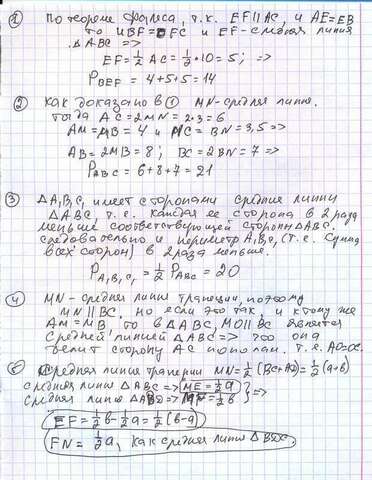 ① По теореме Фалеса, т.к. EF ∥ AC, и AE=EB
то и BF=FC и EF-средняя линия
△ABC =>
EF = 1/2 AC = 1/2·10 = 5; =>
P_BEF = 4+5+5=14
② Как доказано в ① MN-средняя линия.
тогда AC=2MN = 2·3=6
AM=MB = 4 и NC = BN = 3,5 =>
AB = 2MB = 8; BC = 2BN = 7 =>
P_ABC = 6+8+7 = 21
③ △A₁B₁C₁ имеет сторонами средние линии
△ABC, т.е. каждая ее сторона в 2 раза
меньше соответствующей стороны △ABC.
следовательно и периметр A₁B₁C₁ (т.е. сумма
всех сторон) в 2 раза меньше.
P_A₁B₁C₁ = 1/2 P_ABC = 20
④ MN - средняя линия трапеции, поэтому
MN ∥ BC, но если это так, и к тому же
AM=MB, то в △ABC, MO ∥ BC является
средней линией △ABC => что она
делит сторону AC пополам. т.е. AO=OC.
⑤ Средняя линия трапеции MN = 1/2 (BC+AD) = 1/2 (a+b)
средняя линия △ABC => ME = 1/2 a
средняя линия △ABD => MF = 1/2 b } =>
EF = 1/2 b - 1/2 a = 1/2 (b-a)
FN = 1/2 a, как средняя линия △BDC.